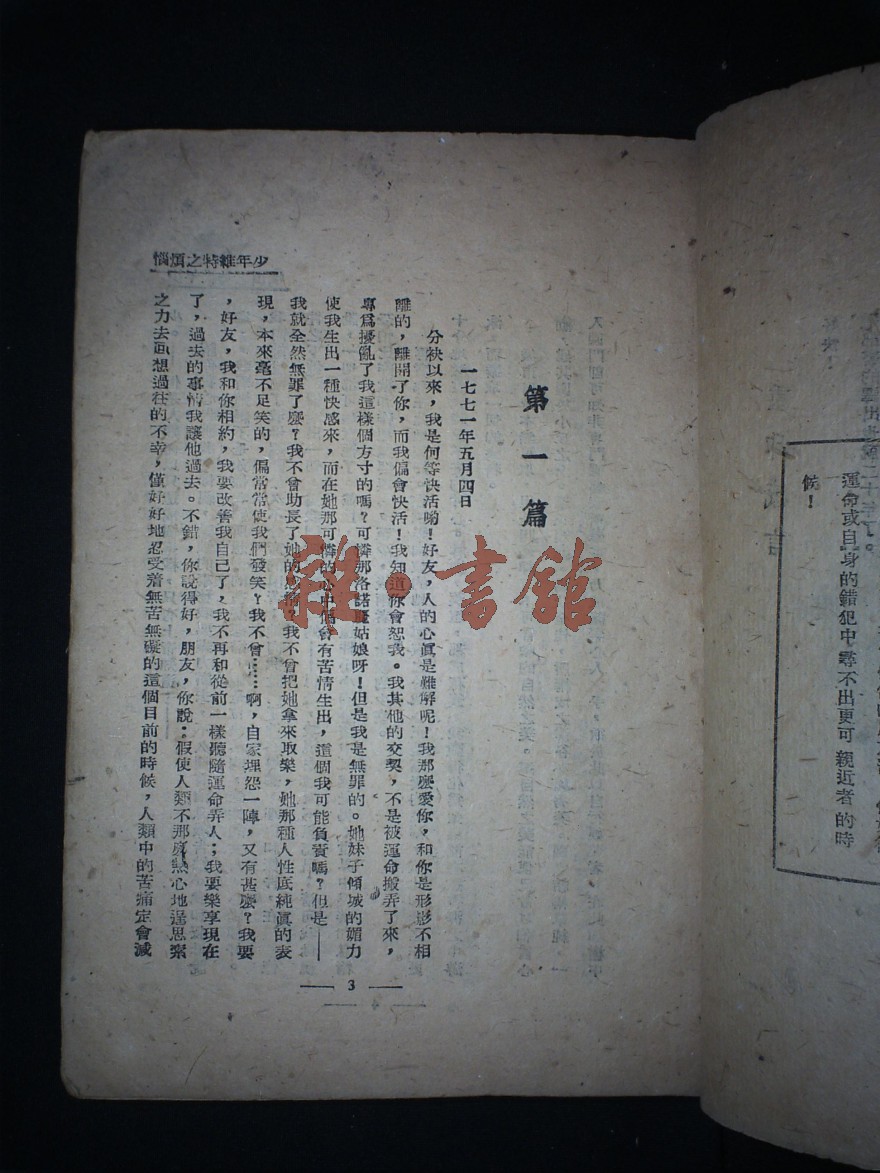 運命或自身的錯犯中尋不出更可親近者的時
候！
第一篇
一七七一年五月四日
分袂以來，我是何等快活喲！好友，人的心眞是難解呢！我那麼愛你，和你是形影不相
離的，離開了你，而我偏會快活！我知道你會恕我。我其他的交契，不是被運命搬弄了來，
專爲擾亂了我這樣個方寸的嗎？可憐那洛諾麗姑娘呀！但是我是無罪的。她妹子傾城的媚力
使我生出一種快感來，而在她那可憐的心中偏會有苦情生出，這個我可能負責嗎？但是——
我就全然無罪了麼？我不曾助長了她的感情？我不曾把她拿來取樂，她那種人性底純眞的表
現，本來毫不足笑的，偏常常使我們發笑？我不曾……啊，自家埋怨一陣，又有甚麼？我要
，好友，我和你相約，我要改善我自己了，我不再和從前一樣聽隨運命弄人；我要樂享現在
了，過去的事情我讓他過去。不錯，你說得好，朋友，你說：假使人類不那麼熱心地逞思索
之力去回想過往的不幸，僅好好地忍受着無苦無礙的這個目前的時候，人類中的苦痛定會減
少年維特之煩惱
— 3 —
雜·書館